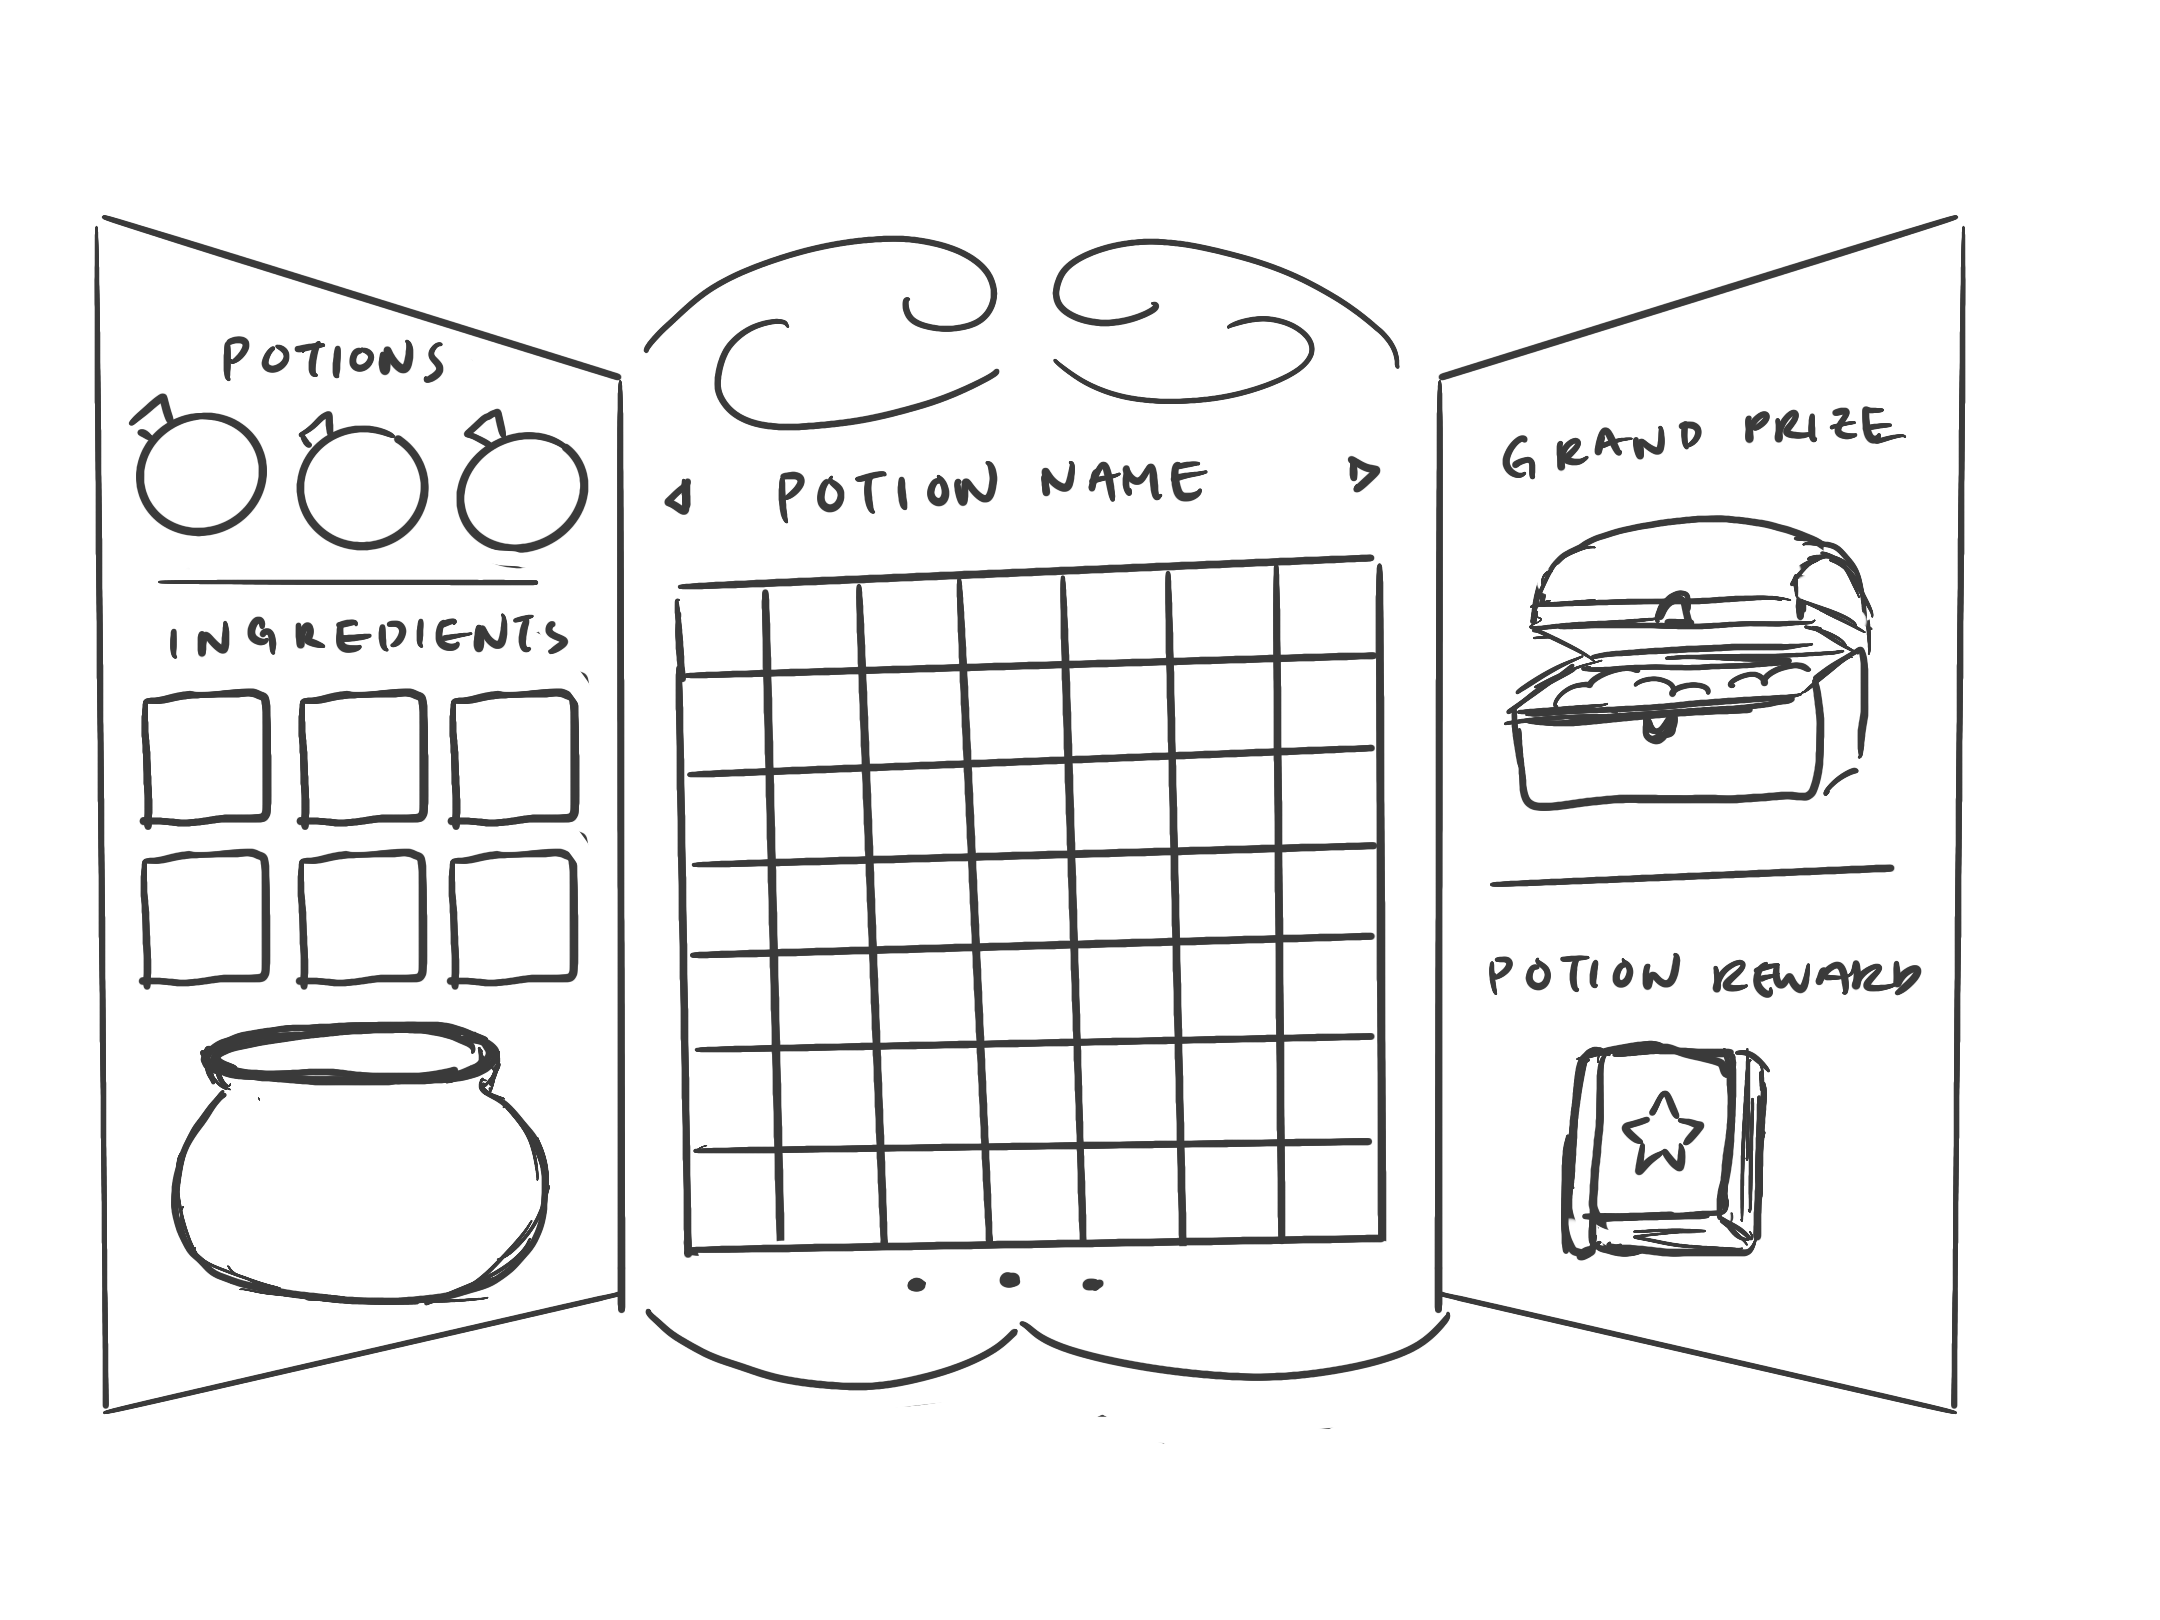 POTIONS
INGREDIENTS
POTION NAME
GRAND PRIZE
POTION REWARD